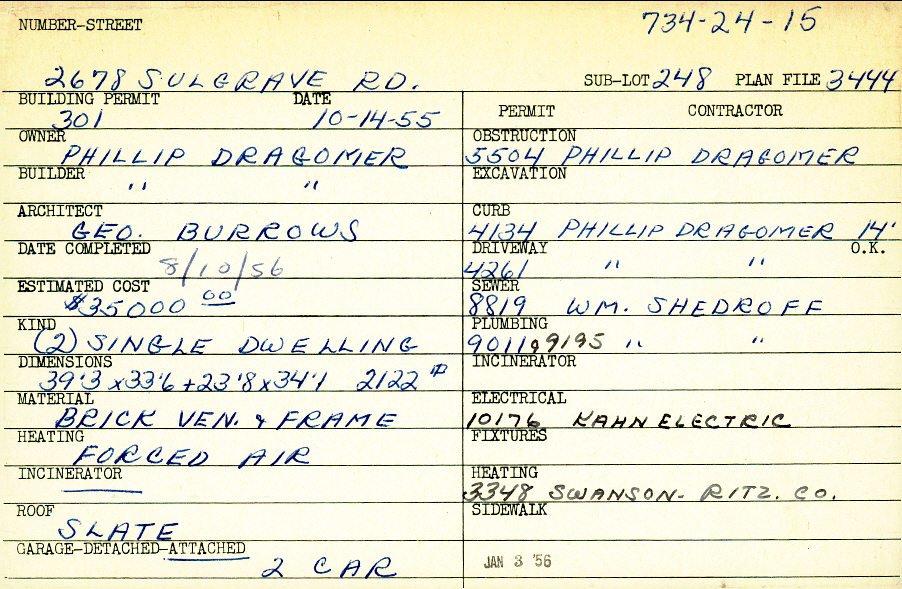 734-24-15
NUMBER-STREET
2678 SULGRAVE RD. SUB-LOT 248 PLAN FILE 3444
BUILDING PERMIT DATE
301 10-14-55
OWNER
PHILLIP DRAGOMER
BUILDER
" "
ARCHITECT
GEO. BURROWS
DATE COMPLETED
8/10/56
ESTIMATED COST
$35000 00
KIND
(2) SINGLE DWELLING
DIMENSIONS
39'3 x 33'6 + 23'8 x 34'1 2122 #
MATERIAL
BRICK VEN. & FRAME
HEATING
FORCED AIR
INCINERATOR
ROOF
SLATE
GARAGE-DETACHED-ATTACHED
2 CAR
PERMIT CONTRACTOR
OBSTRUCTION
5504 PHILLIP DRAGOMER
EXCAVATION
CURB
4134 PHILLIP DRAGOMER 14'
DRIVEWAY O.K.
4261 " "
SEWER
8819 WM. SHEDROFF
PLUMBING
9011 & 9195 " "
INCINERATOR
ELECTRICAL
10176 KAHN ELECTRIC
FIXTURES
HEATING
3348 SWANSON-RITZ. CO.
SIDEWALK
JAN 3 '56